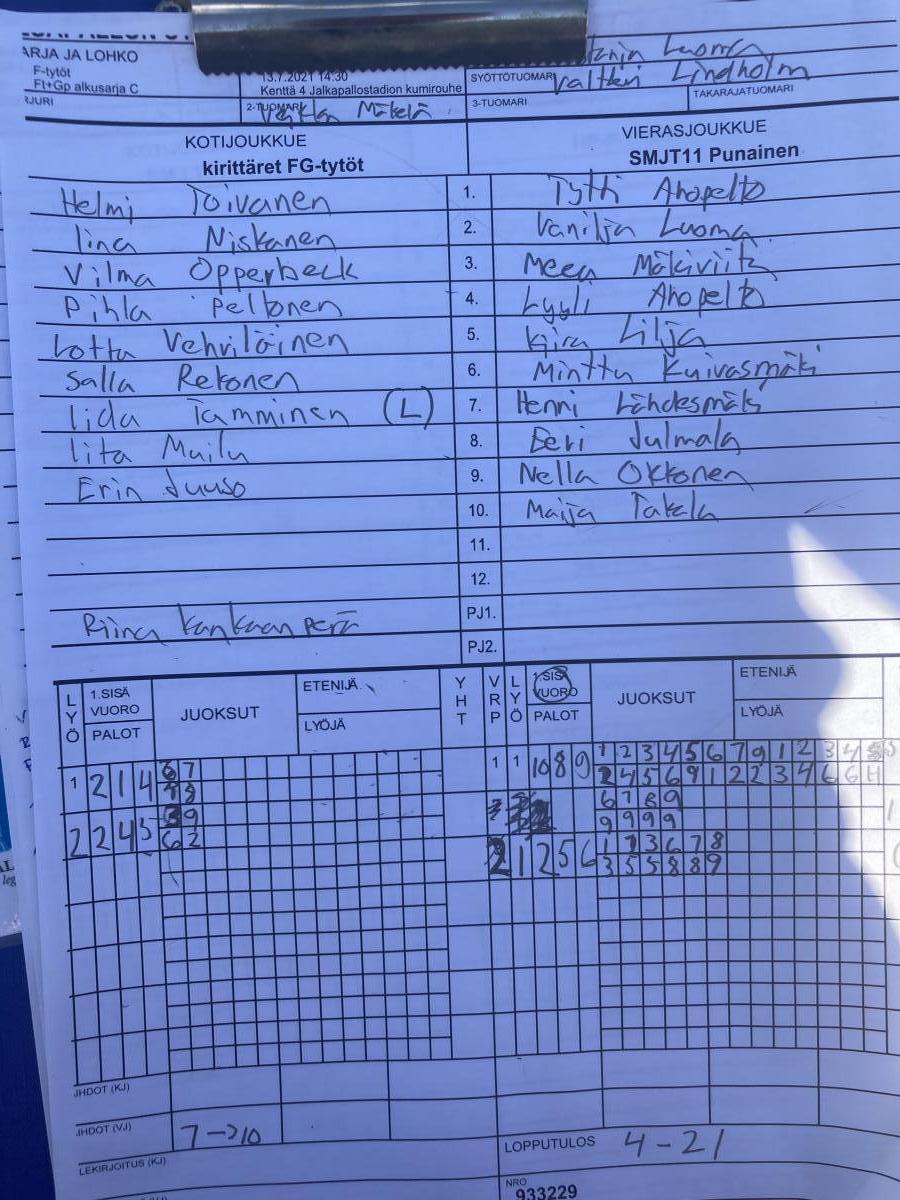 ARJA JA LOHKO
F-tytöt
Ft+Gp alkusarja C
13.7.2021 14:30
Kenttä 4 Jalkapallostadion kumirouhe
Luoma
SYÖTTÖTUOMARI
Valtteri Lindholm
2-TUOMARI
Mäkelä
3-TUOMARI
TAKARAJATUOMARI
KOTIJOUKKUE
kirittäret FG-tytöt
VIERASJOUKKUE
SMJT11 Punainen
Helmi Toivanen 1. Tytti Ahopelto
Iina Niskanen 2. Vanilja Luoma
Vilma Opperbeck 3. Meea Mäkiviita
Pihla Peltonen 4. Lyyli Ahopelto
Lotta Vehviläinen 5. Kiira Lilja
Salla Rekonen 6. Minttu Kuivasmäki
Iida Tamminen (L) 7. Henni Lähdesmäki
Iita Muilu 8. Eeri Julmala
Erin Juuso 9. Nella Okkonen
10. Maija Takala
11.
12.
Riina Kankaanperä PJ1.
PJ2.
LYÖ 1.SISÄ VUORO PALOT JUOKSUT ETENIJÄ LYÖJÄ YHT
VRP LYÖ 1.SISÄ VUORO PALOT JUOKSUT ETENIJÄ LYÖJÄ
1 2 1 4
2 2 4 5
6 2
1 1 10 8 9 1 2 3 4 5 6 7 9 1 2 3 4 5
2 4 5 6 9 1 2 2 3 4 6 6
6 7 8 9
9 9 9 9
2 1 2 5 6 1 3 6 7 8
3 5 5 8 8 9
JHDOT (KJ)
JHDOT (VJ) 7->10
LEKIRJOITUS (KJ)
LOPPUTULOS 4-21
NRO
933229